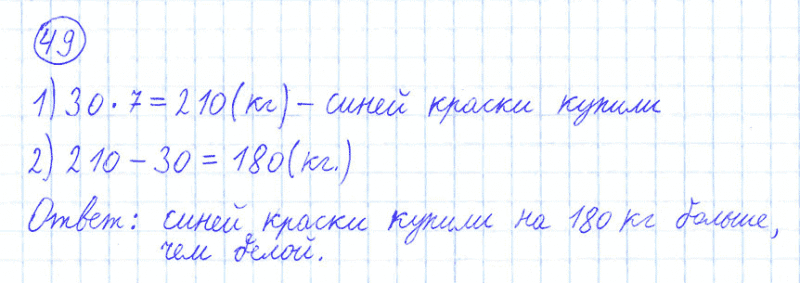 49
1) 30 · 7 = 210 (кг) – синей краски купили
2) 210 – 30 = 180 (кг.)
Ответ: синей краски купили на 180 кг больше,
чем белой.